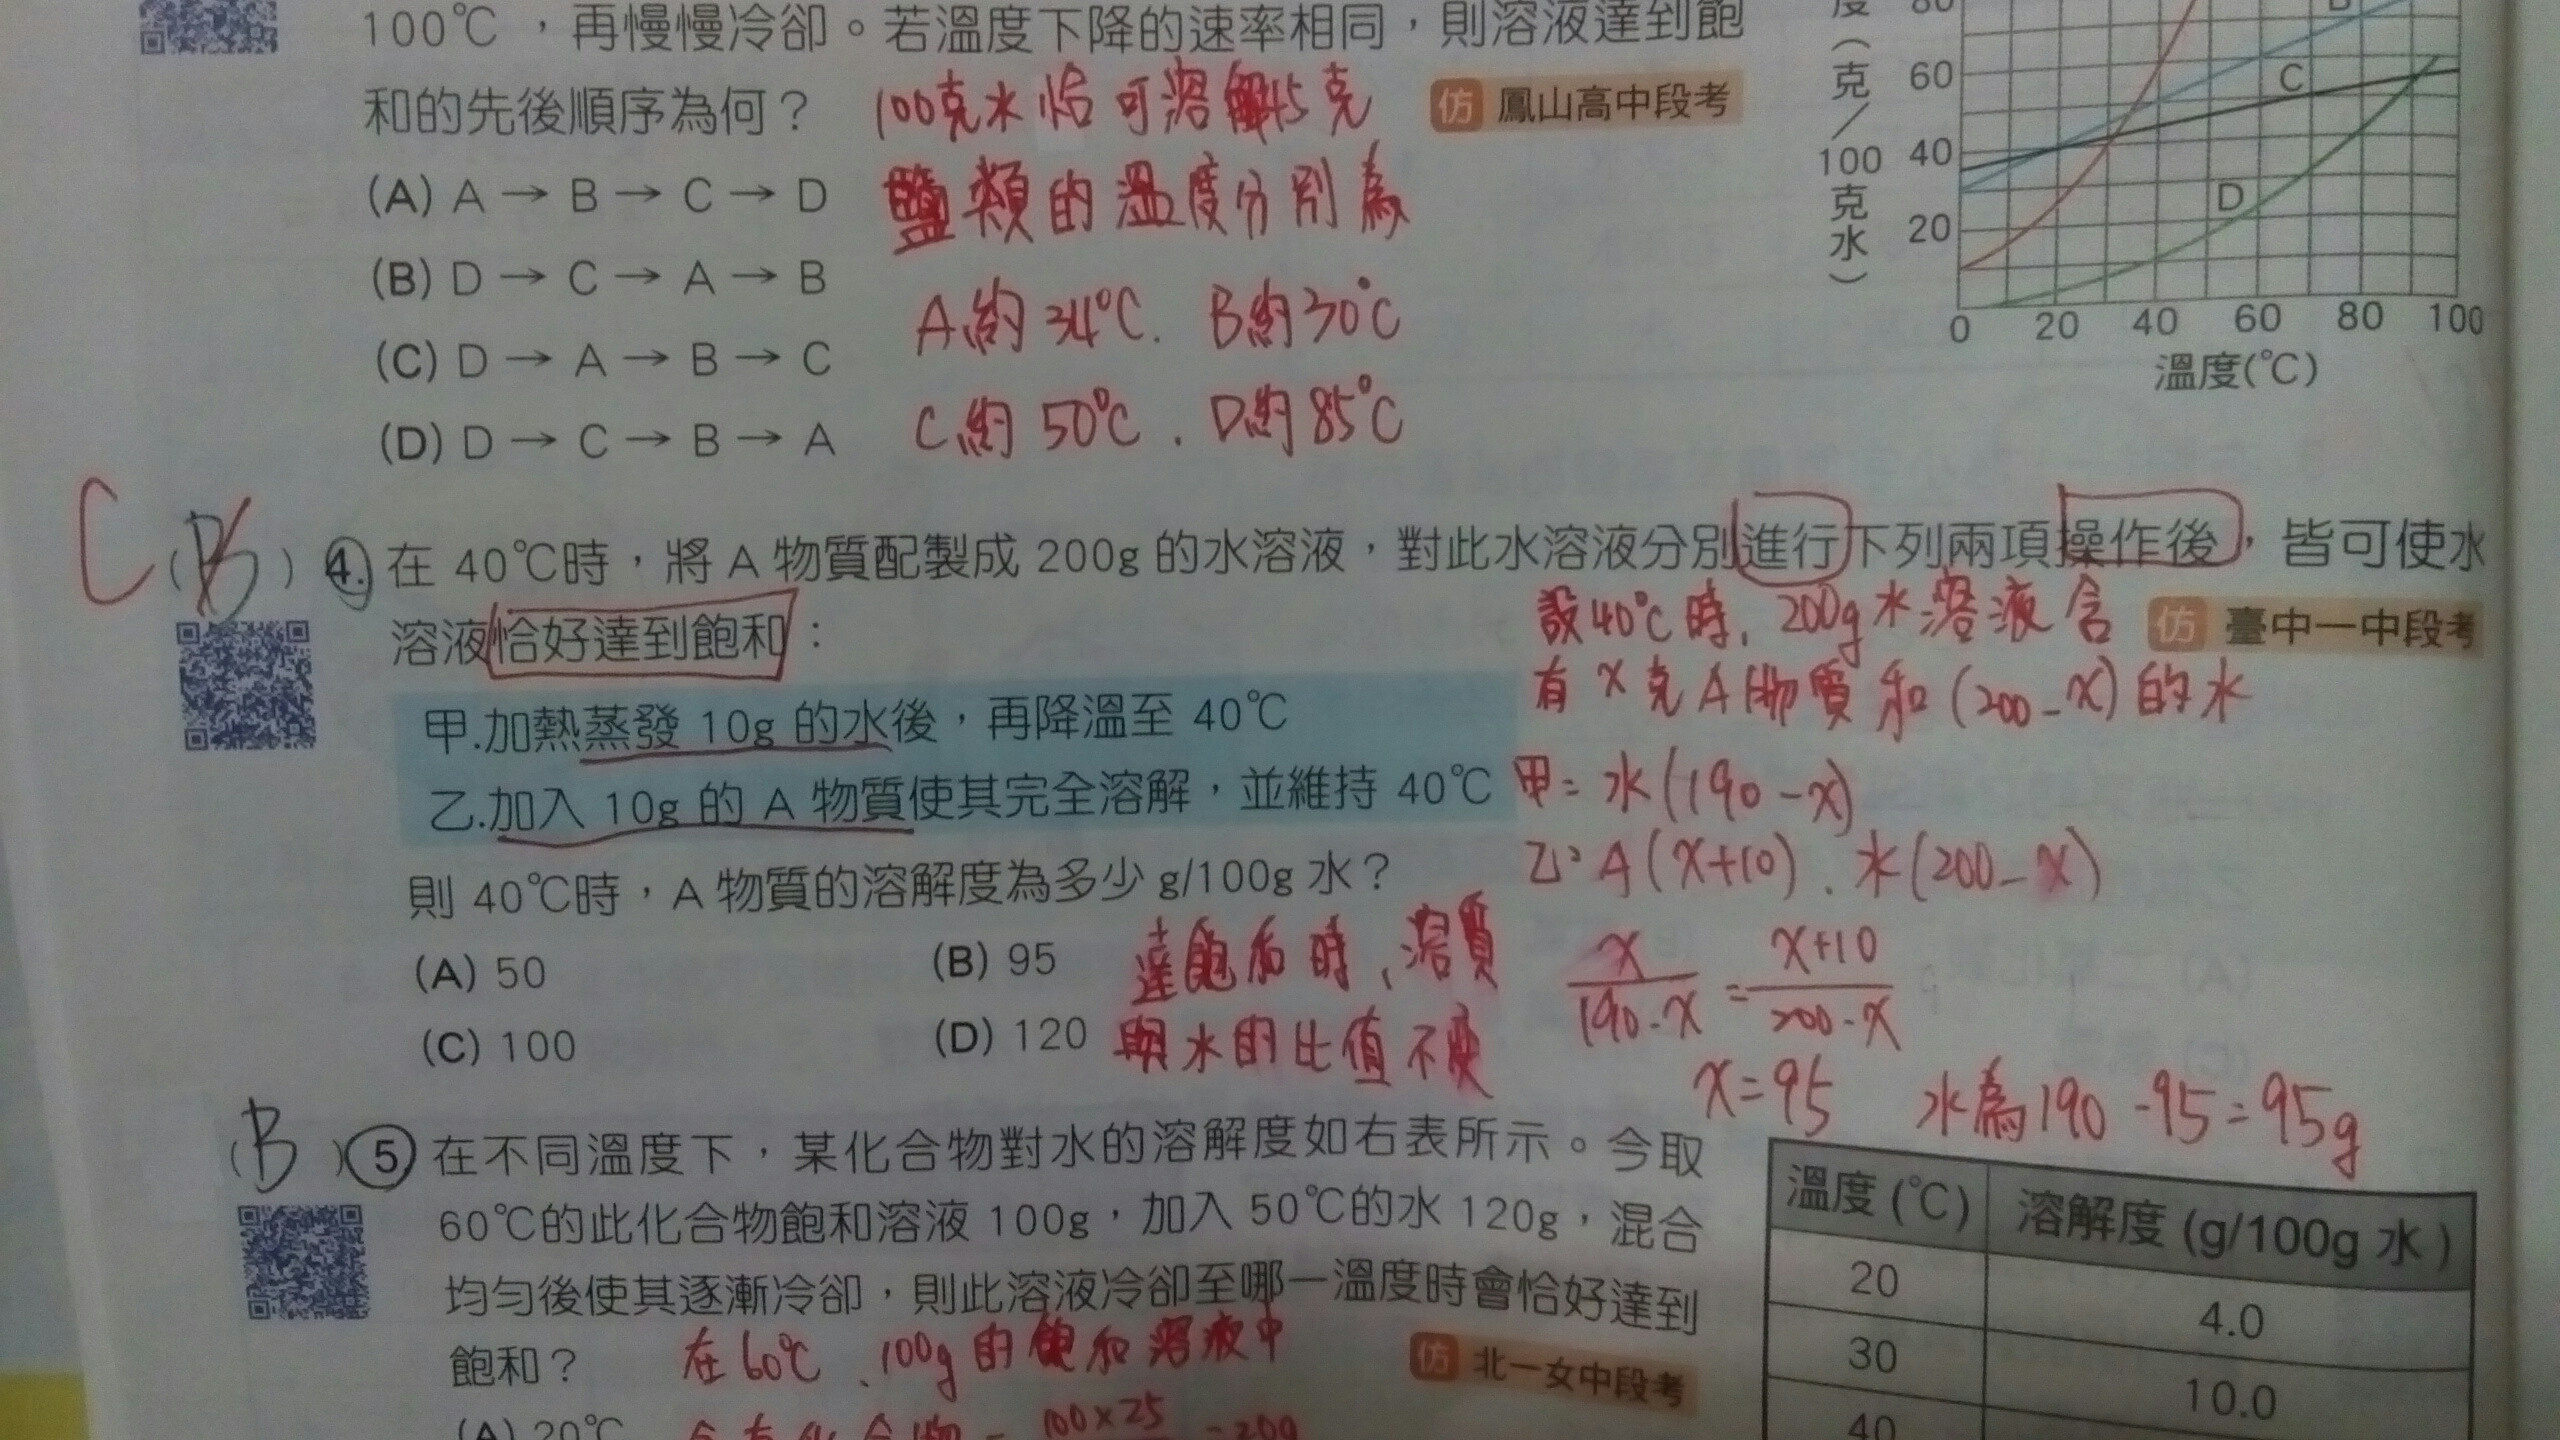 100℃，再慢慢冷卻。若溫度下降的速率相同，則溶液達到飽
和的先後順序為何？
仿 鳳山高中段考
100克水恰可溶解45克
鹽類的溫度分別為
A約34℃. B約30℃
C約50℃. D約85℃
(A) A → B → C → D
(B) D → C → A → B
(C) D → A → B → C
(D) D → C → B → A
度(克/100克水)
80
60
40
20
B
C
D
0 20 40 60 80 100
溫度(℃)
C
( B ) 4. 在 40℃時，將 A 物質配製成 200g 的水溶液，對此水溶液分別進行下列兩項操作後，皆可使水
溶液恰好達到飽和：
仿 臺中一中段考
甲.加熱蒸發 10g 的水後，再降溫至 40℃
乙.加入 10g 的 A 物質使其完全溶解，並維持 40℃
則 40℃時，A 物質的溶解度為多少 g/100g 水？
(A) 50 (B) 95
(C) 100 (D) 120
設40℃時, 200g水溶液含
有x克A物質和(200-x)的水
甲= 水(190-x)
乙= A(x+10). 水(200-x)
達飽和時、溶質
與水的比值不變
x/190-x = x+10/200-x
x=95 水為190-95=95g
( B ) 5 在不同溫度下，某化合物對水的溶解度如右表所示。今取
60℃的此化合物飽和溶液 100g，加入 50℃的水 120g，混合
均勻後使其逐漸冷卻，則此溶液冷卻至哪一溫度時會恰好達到
飽和？
仿 北一女中段考
在60℃、100g的飽和溶液中
(A) 20℃
含有化合物= 100×25 =20g
溫度 (℃) 溶解度 (g/100g 水)
20 4.0
30 10.0
40